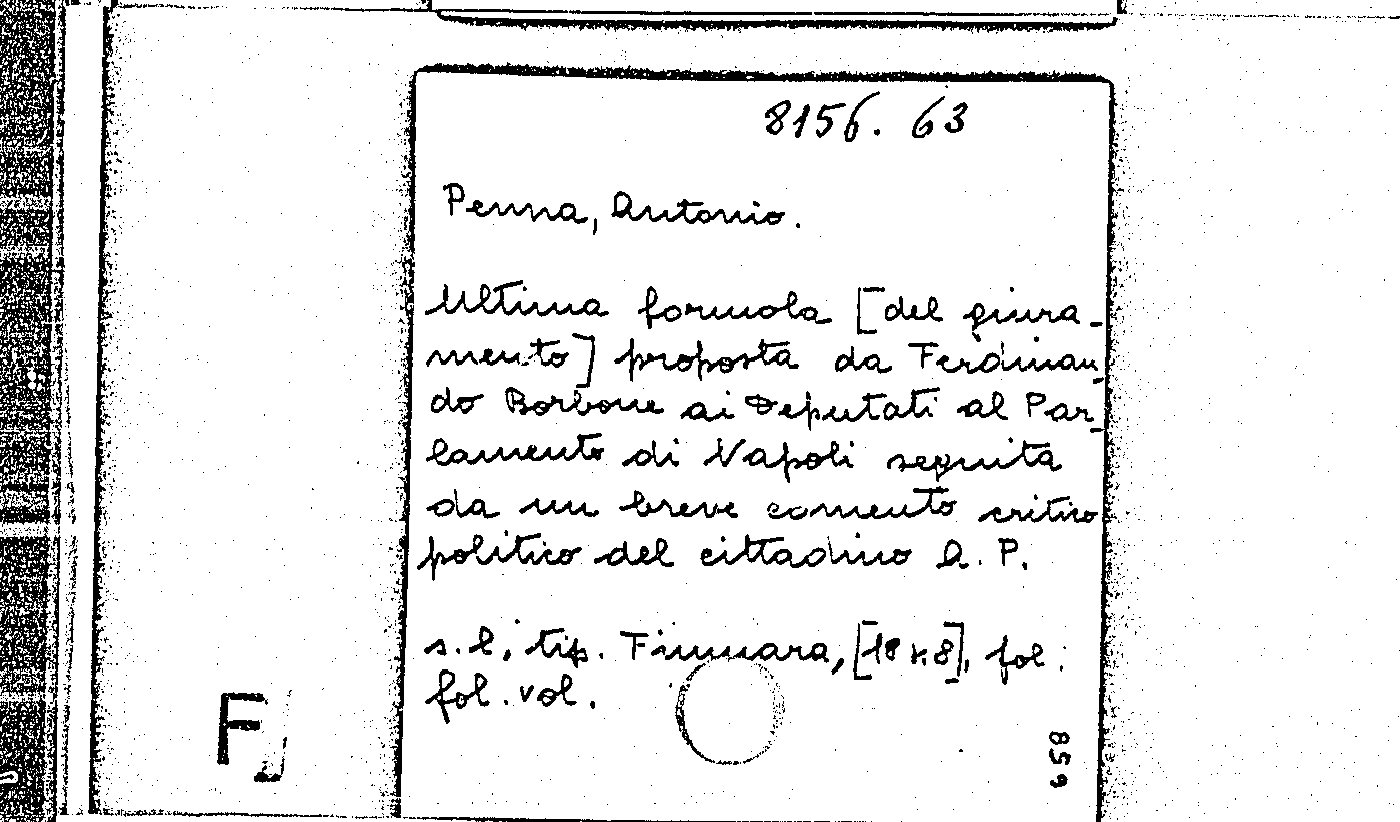 8156. 63
Penna, Antonio.
Ultima formola [del giura-
mento] proposta da Ferdinan-
do Borbone ai Deputati al Par-
lamento di Napoli seguita
da un breve comento critico
politico del cittadino A. P.
s.l, tip. Fiumara, [1848], fol.
fol. vol.
859
F